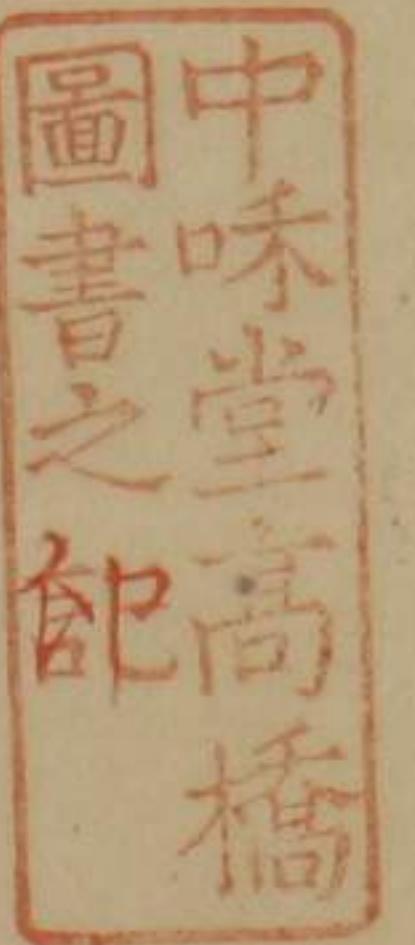 中咊堂高橋
圖書之記